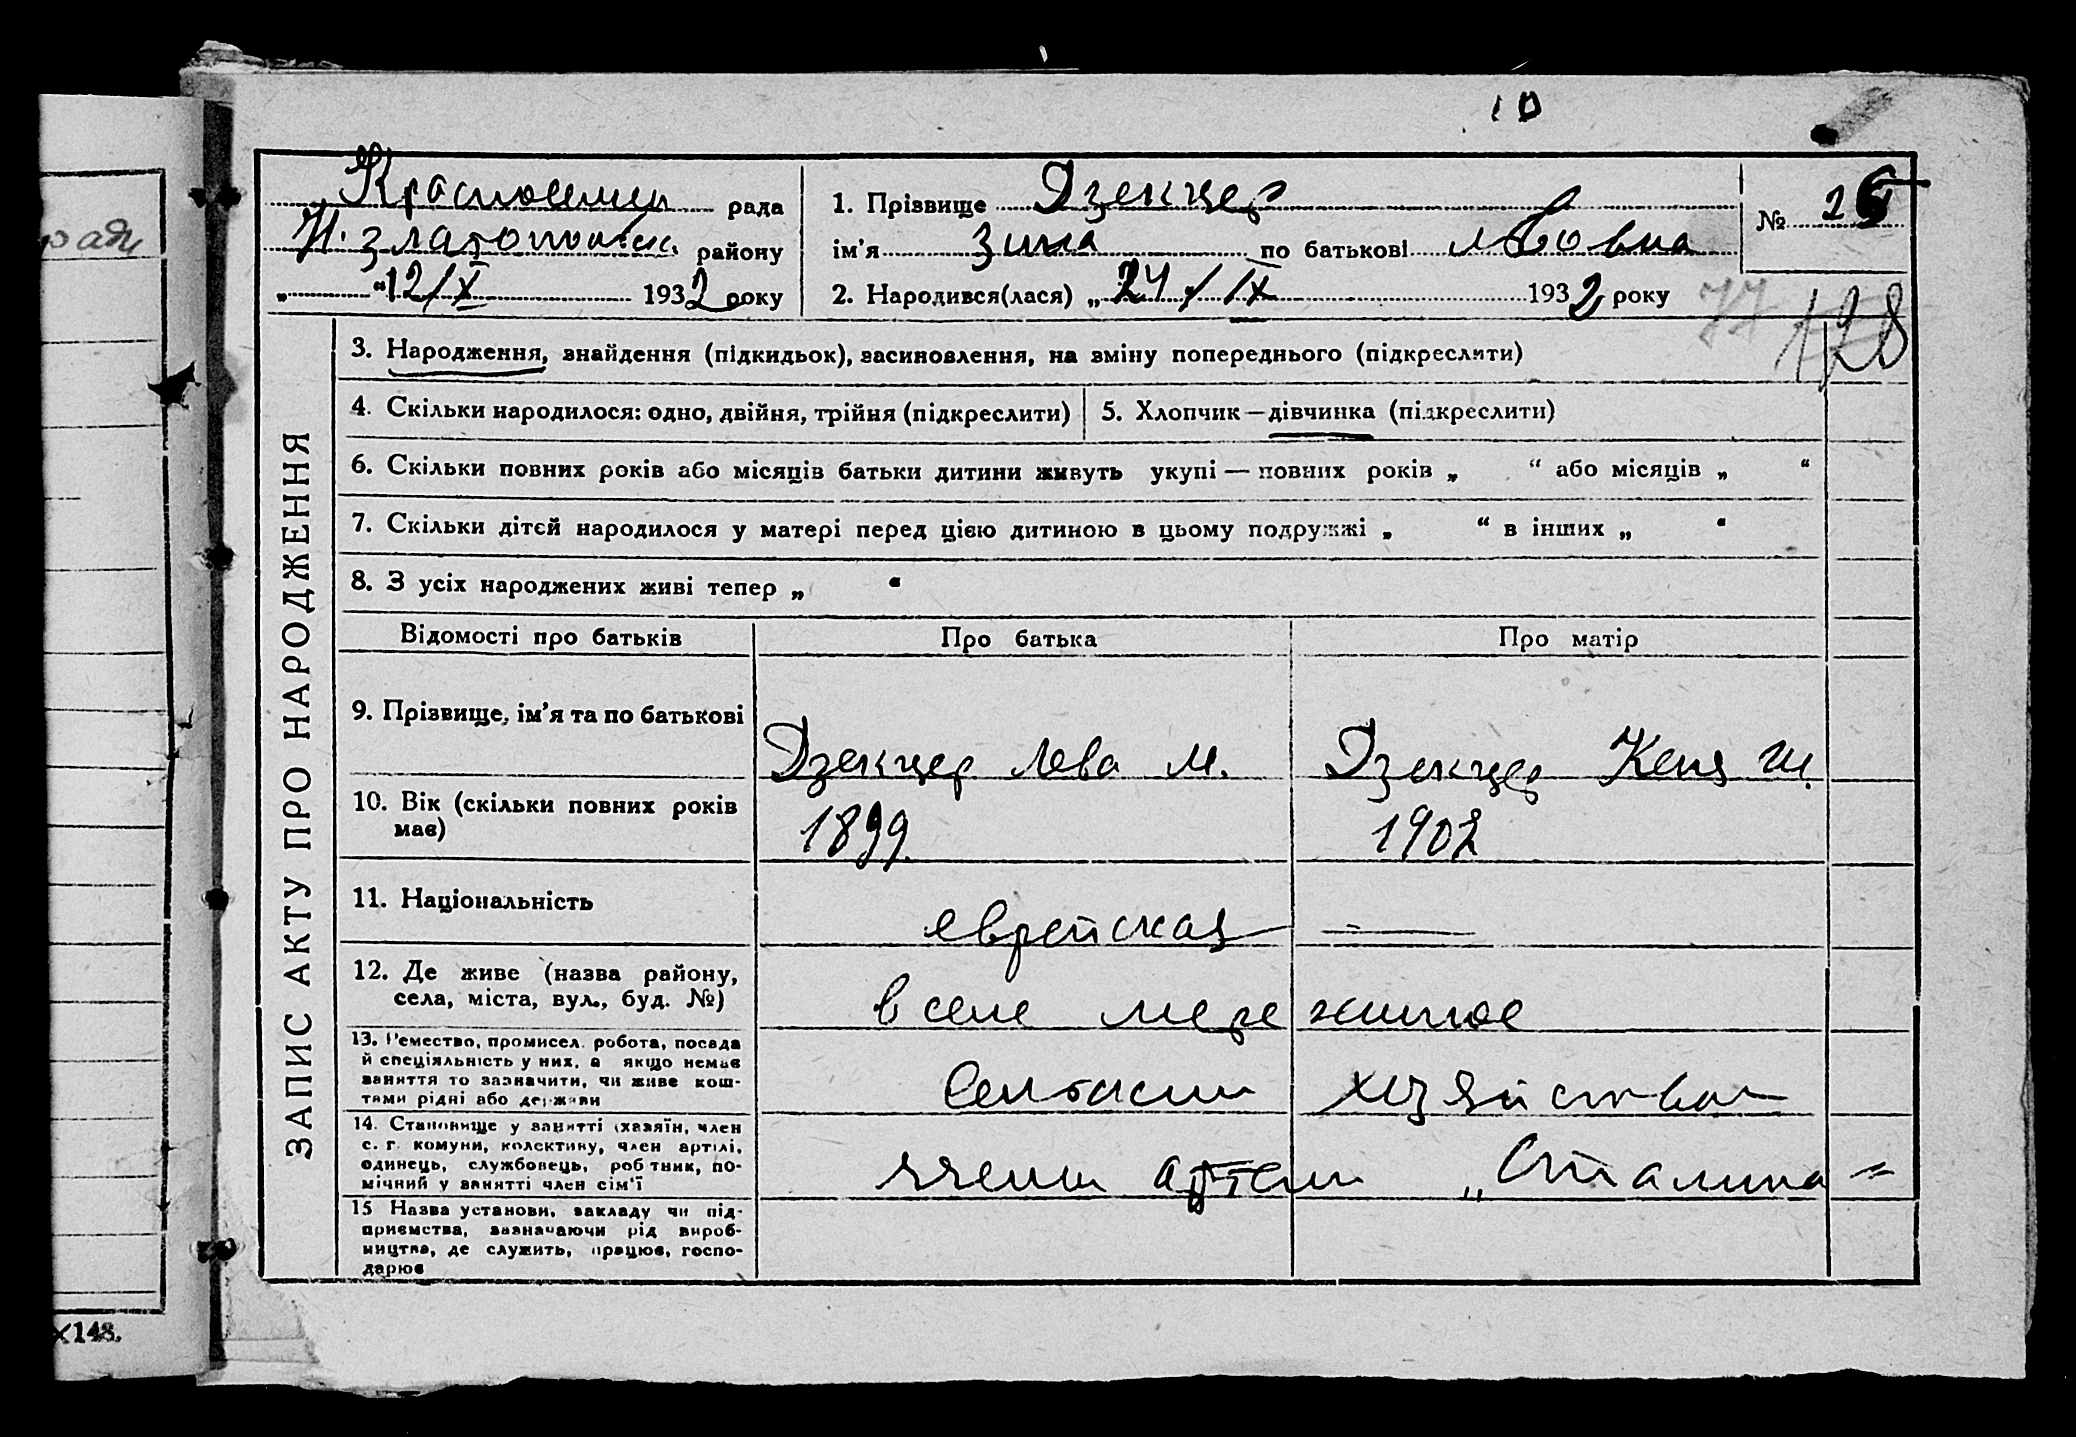 10
рада
Н. Златопольск. району
"12/X 1932 року
1. Прізвище Дзекцер
ім'я Зина по батькові Львовна
2. Народився(лася) „24/IX 1932 року
№ 26
77 128
ЗАПИС АКТУ ПРО НАРОДЖЕННЯ
3. Народження, знайдення (підкидьок), засиновлення, на зміну попереднього (підкреслити)
4. Скільки народилося: одно, двійня, трійня (підкреслити)
5. Хлопчик — дівчинка (підкреслити)
6. Скільки повних років або місяців батьки дитини живуть укупі — повних років „ “ або місяців „ “
7. Скільки дітей народилося у матері перед цією дитиною в цьому подружжі „ “ в інших „ “
8. З усіх народжених живі тепер „ “
Відомості про батьків Про батька Про матір
9. Прізвище, ім'я та по батькові
Дзекцер Лева М. Дзекцер Кеня Ш.
10. Вік (скільки повних років
має)
1899 1902
11. Національність
еврейская
12. Де живе (назва району,
села, міста, вул., буд. №)
в селе
13. Ремество, промисел, робота, посада
й спеціяльність у них, а якщо немає
заняття то зазначити, чи живе кош-
тами рідні або держави
хозяйством
14. Становище у занятті (хазяїн, член
с. г. комуни, колективу, член артілі,
одинець, службовець, робітник, по-
мічний у занятті член сім'ї
члени артели „Сталина"
15 Назва установи, закладу чи під-
приємства, зазначаючи рід вироб-
ництва, де служить, працює, госпо-
дарює
ради
×148.